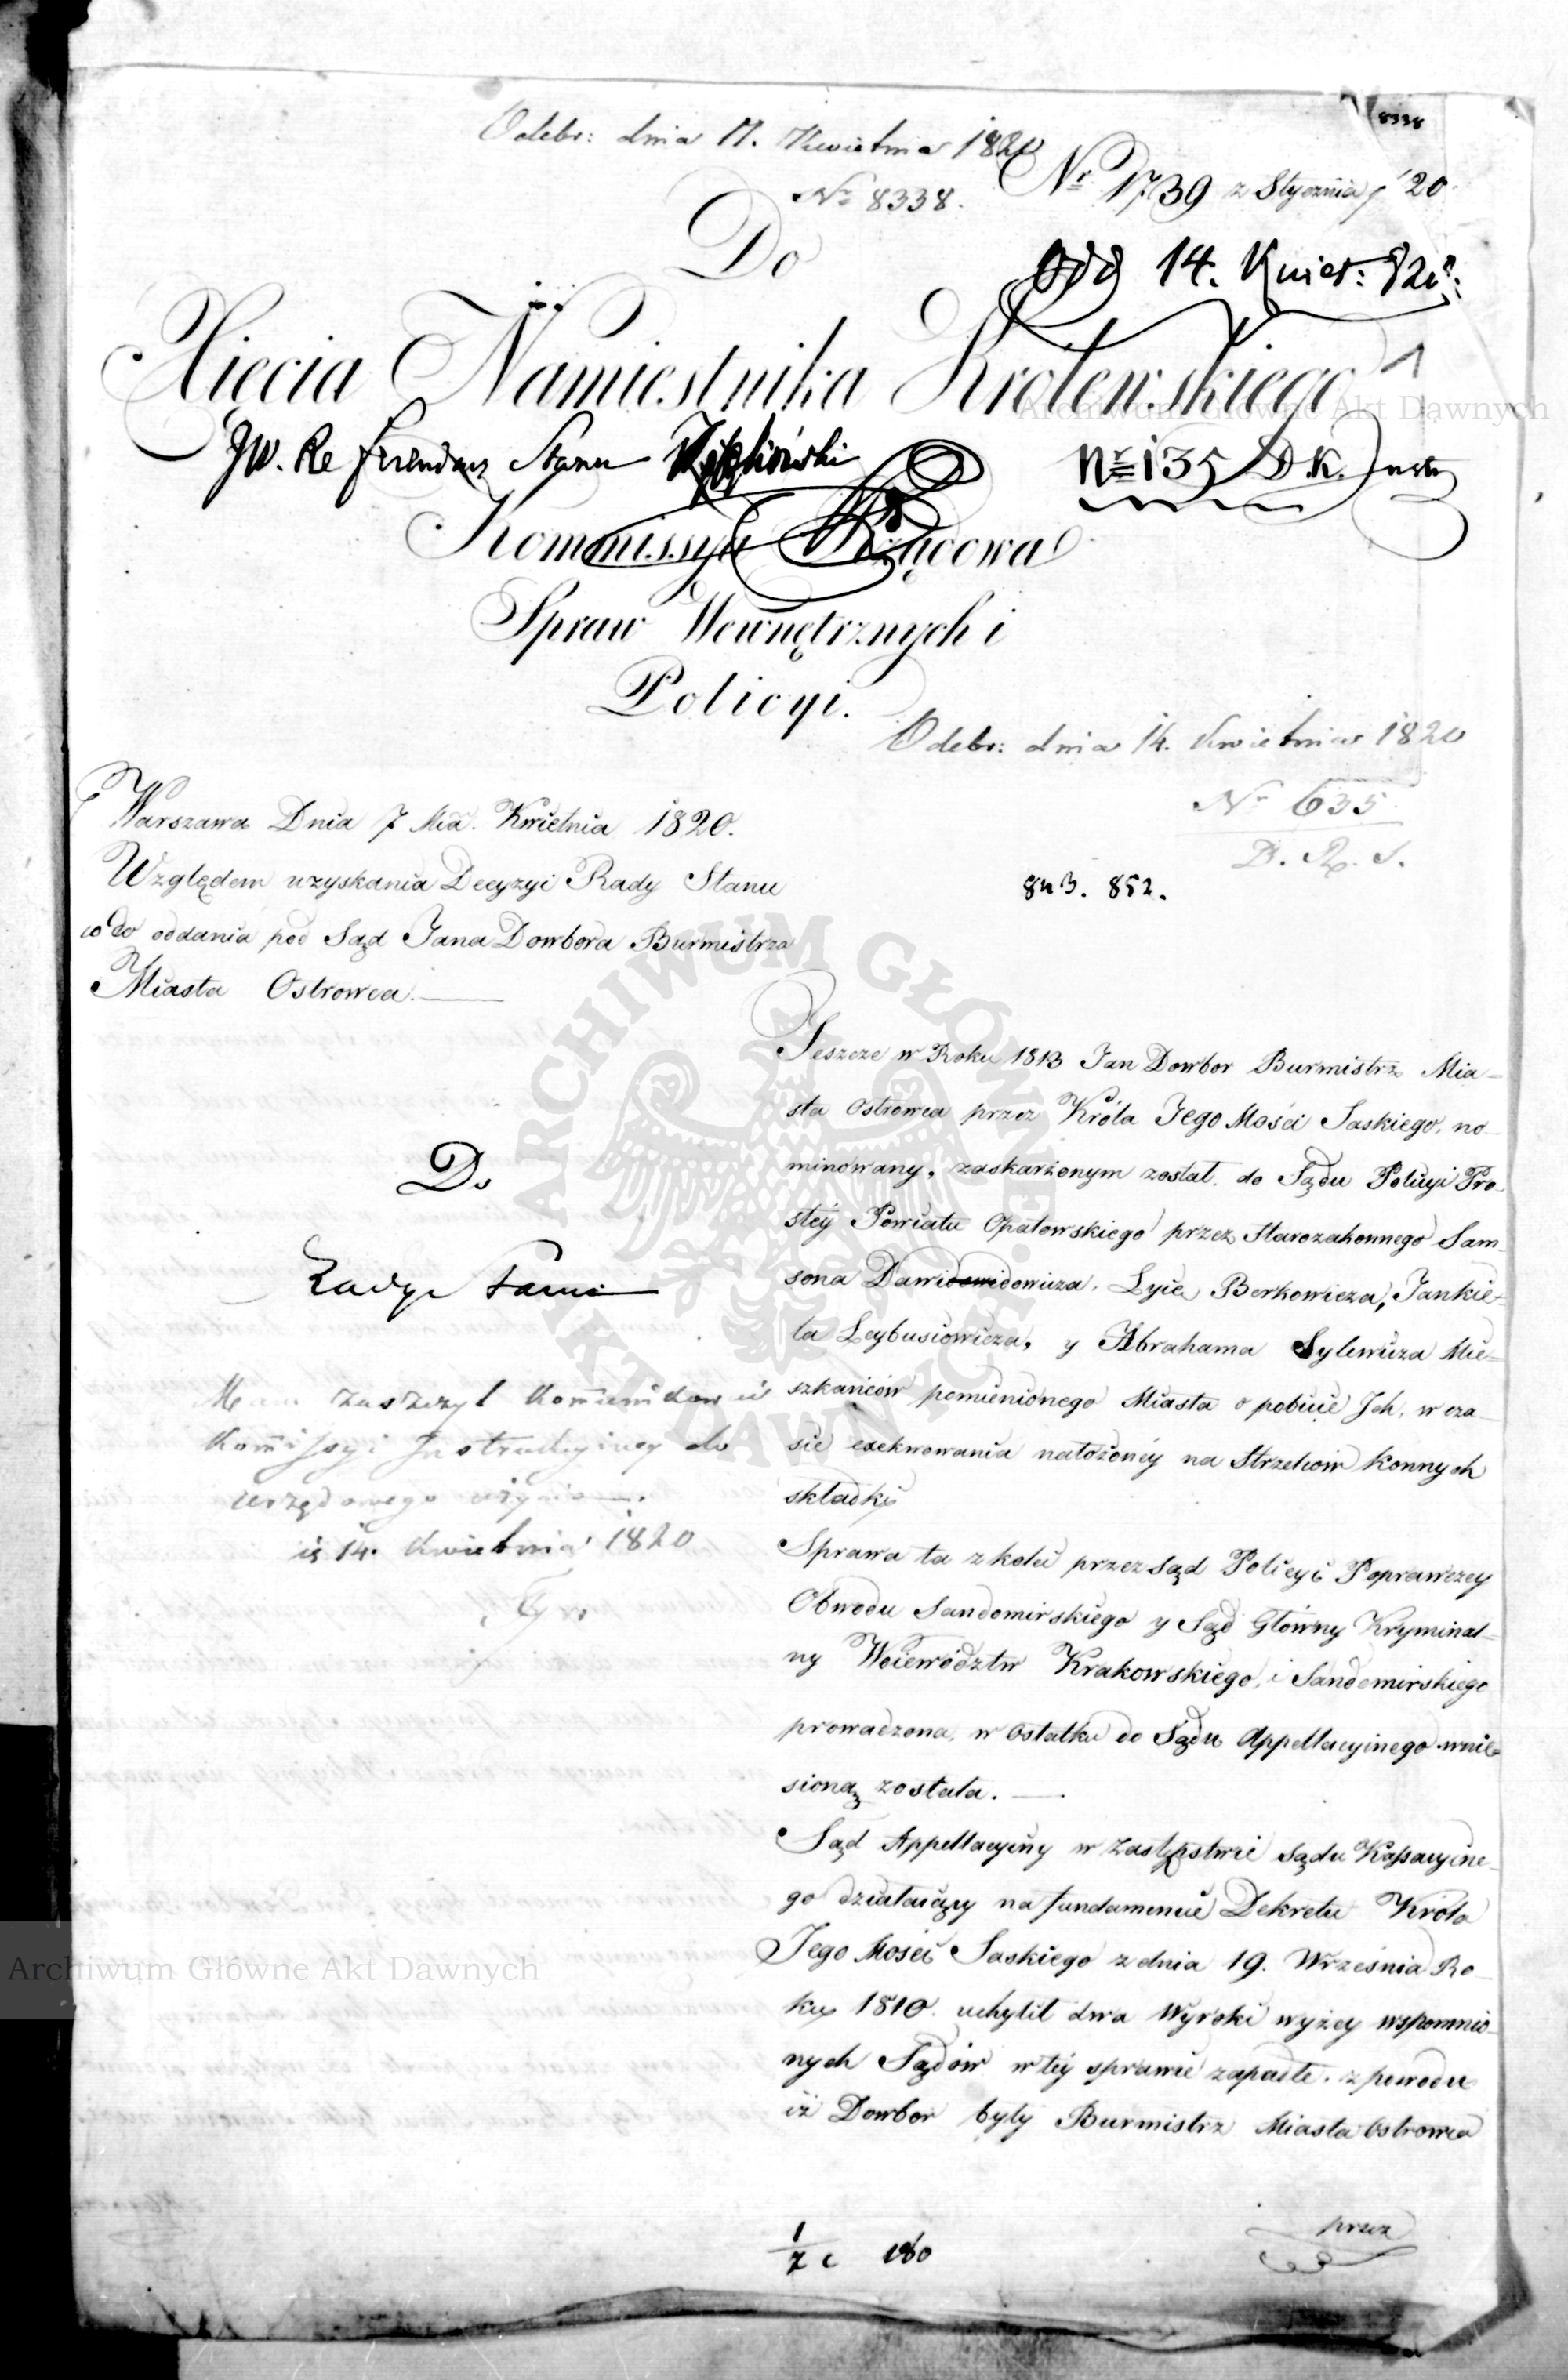 8338
Odebr: dnia 11. Kwietnia 1820
Nr 8338.
Nr 1739 z Stycznia r 20
Do
Odd 14. Kwiet: 820:
Xięcia Namiestnika Królewskiego
1
JW. Referendarz Stanu
Nr 135 D.K.
Kommissya Rządowa
Spraw Wewnętrznych i
Policyi.
Odebr: dnia 14. Kwietnia 1820
Nr 635
D. R. S.
Warszawa Dnia 7 Mca. Kwietnia 1820.
Względem uzyskania Decyzyi Rady Stanu
co do oddania pod Sąd Jana Dowbora Burmistrza
Miasta Ostrowca.
843. 852.
Do
Rady Stanu
Mam zaszczyt
do
urzędowego
14. Kwietnia 1820
Jeszcze w Roku 1813 Jan Dowbor Burmistrz Mia-
sta Ostrowca przez Króla Jego Mości Saskiego, no-
minowany, zaskarżonym został do Sądu Policyi Pro-
stéy Powiatu Opatowskiego przez Starozakonnego Sam-
sona Dawidowicza, Berkowicza, Jankie-
la Leybusiowicza, y Abrahama Sylewicza Mie-
szkańców pomienionego Miasta o pobicie Jch, w cza-
sie exekwowania nałożonéy na Strzelców konnych
składki
Sprawa ta z kolei przez Sąd Policyi Poprawczey
Obwodu Sandomirskiego y Sąd Główny Kryminal-
ny Woiewództw Krakowskiego, i Sandomirskiego
prowadzona, w ostatku do Sądu Appellacyinego wnie-
sioną została.
Sąd Appellacyiny w zastępstwie Sądu Kassacyine-
go działaiący na fundamencie Dekretu Króla
Jego Mości Saskiego z dnia 19. Września Ro-
ku 1810. uchylił dwa Wyroki wyżey wspomnio-
nych Sądów w téy sprawie zapadłe, z powodu
iż Dowbor były Burmistrz Miasta Ostrowca
przez
Archiwum Główne Akt Dawnych
Archiwum Główne Akt Dawnych
ARCHIWUM GŁÓWNE AKT DAWNYCH